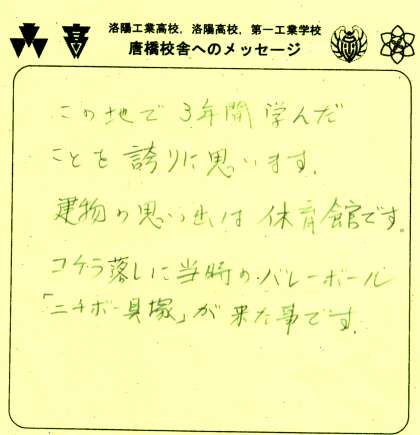 洛陽工業高校，洛陽高校，第一工業学校
唐橋校舎へのメッセージ
高
この地で3年間学んだ
ことを誇りに思います。
建物の思い出は体育館です。
コケラ落しに当時のバレーボール
「ニチボー貝塚」が来た事です。